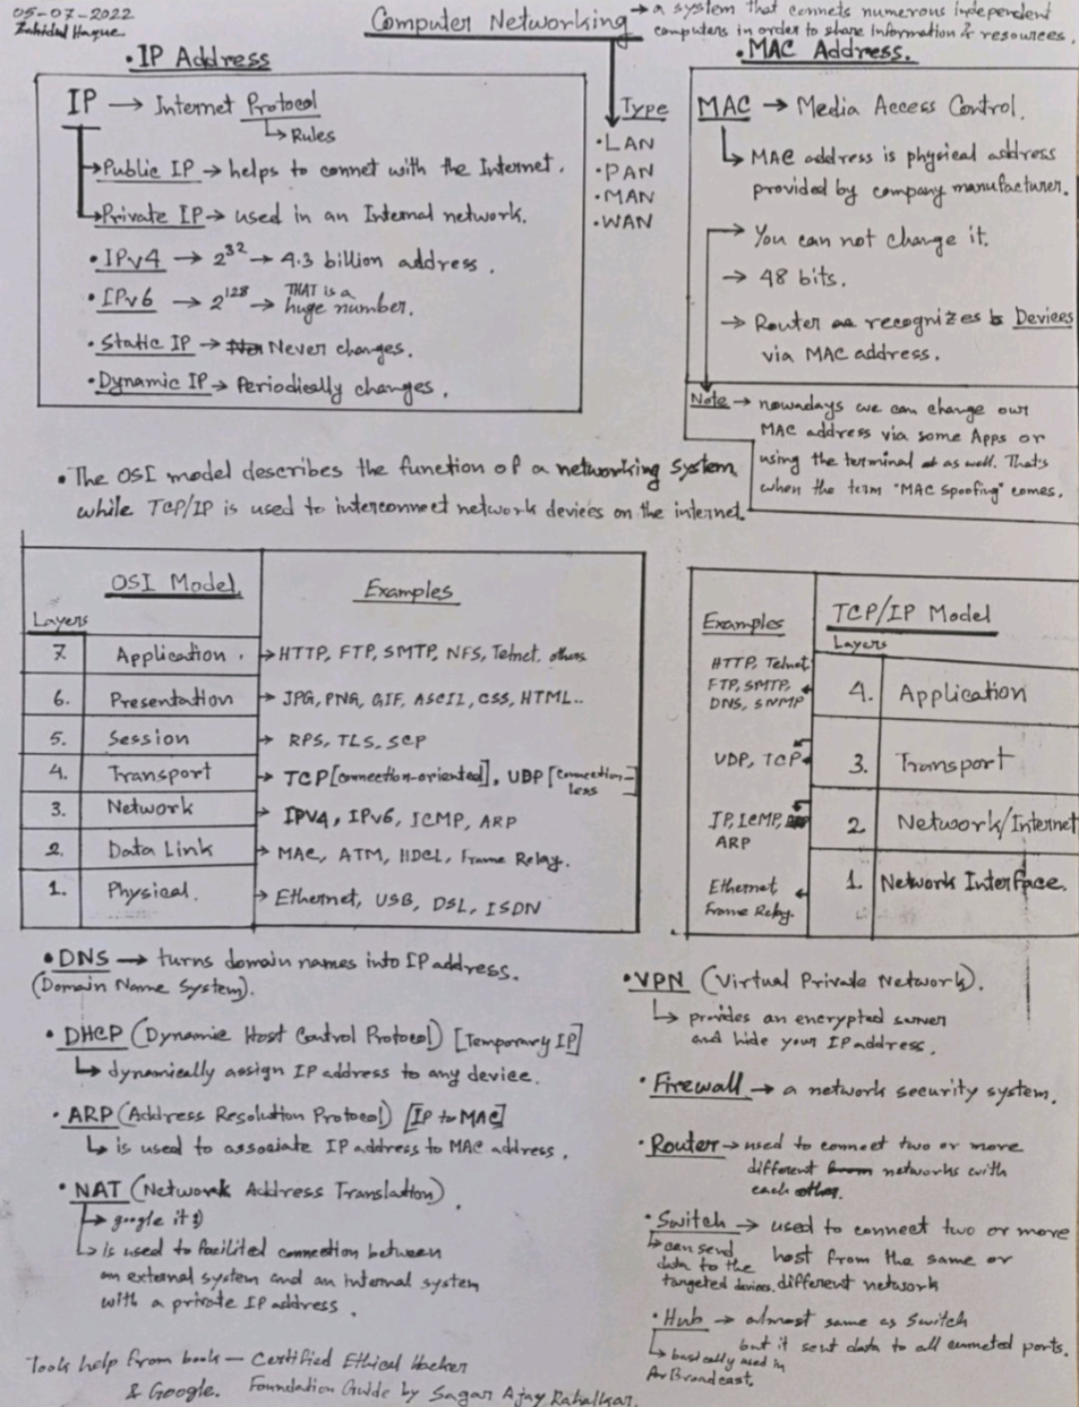 05-07-2022
Zahidul Haque
Computer Networking → a system that connets numerous independent
computers in order to share Information & resources.
• IP Address
IP → Internet Protocol
↳ Rules
→ Public IP → helps to connet with the Internet.
→ Private IP → used in an Internal network.
• IPv4 → 2³² → 4.3 billion address.
• IPv6 → 2¹²⁸ → THAT is a
huge number.
• Static IP → Never changes.
• Dynamic IP → Periodically changes.
Type
• LAN
• PAN
• MAN
• WAN
• MAC Address.
MAC → Media Access Control.
↳ MAC address is physical address
provided by company manufacturer.
→ You can not change it.
→ 48 bits.
→ Router recognizes Devices
via MAC address.
Note → nowadays we can change our
MAC address via some Apps or
using the terminal as well. That's
when the term "MAC Spoofing" comes.
• The OSI model describes the function of a networking system
while TCP/IP is used to interconnect network devices on the internet.
OSI Model Examples
Layers
7. Application. → HTTP, FTP, SMTP, NFS, Telnet. others
6. Presentation → JPG, PNG, GIF, ASCII, CSS, HTML..
5. Session → RPS, TLS, SCP
4. Transport → TCP [connection-oriented], UDP [connection-
less]
3. Network → IPV4, IPv6, ICMP, ARP
2. Data Link → MAC, ATM, HDCL, Frame Relay.
1. Physical. → Ethernet, USB, DSL, ISDN
Examples TCP/IP Model
Layers
HTTP, Telnet
FTP, SMTP,
DNS, SNMP
4. Application
UDP, TCP 3. Transport
IP, ICMP,
ARP
2. Network/Internet
Ethernet
Frame Relay.
1. Network Interface.
• DNS → turns domain names into IP address.
(Domain Name System).
• DHCP (Dynamic Host Control Protocol) [Temporary IP]
↳ dynamically assign IP address to any device.
• ARP (Address Resolution Protocol) [IP to MAC]
↳ is used to associate IP address to MAC address.
• NAT (Network Address Translation).
↳ google it :)
↳ is used to facilited connection between
an external system and an internal system
with a private IP address.
Took help from book — Certified Ethical Hacker
& Google. Foundation Guide by Sagar Ajay Rahalkar.
• VPN (Virtual Private Network).
↳ provides an encrypted server
and hide your IP address.
• Firewall → a network security system.
• Router → used to connect two or more
different networks with
each other.
• Switch → used to connect two or more
host from the same or
different network
↳ can send
data to the
targeted devices.
• Hub → almost same as Switch
but it sent data to all conneted ports.
↳ basically used in
Broadcast.